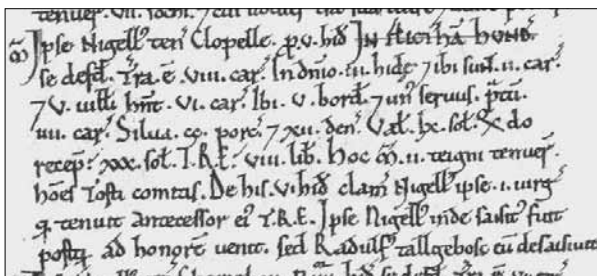 tenueɼ. VII. sochi. ⁊
M̃ Ipse Nigell' ten' Clopelle. ꝑ. V. hid̃ IN Flictha̅ hund'.
se defd'. Tr̃a. ẽ. VIII. car̃. In dñio. III. hidę ⁊ ibi sunt. II. car̃.
⁊ V. uilli hn̅t. VI. car̃. Ibi. V. bord̃. ⁊ un' seruus. p̃tu̅.
IIII. car̃. Silua. Cͦ. porc'. ⁊ XII. den'. Val'. LX. sol'. Q̃do
recep̃: XXX. sol'. T.R.E.' VIII. lib'. Hoc M̃. II. teigni tenueɼ.
ho̅es Tosti comitis. De his. V. hid̃ clam̃ Nigell' ipse. I. uirg̃
q̃ tenuit antecessor ei' T.R.E. Ipse Nigell' inde saisit' fuit
postq̃ ad honore̅ uenit. sed Radulf' tallgebosc eu̅ desaisiuit